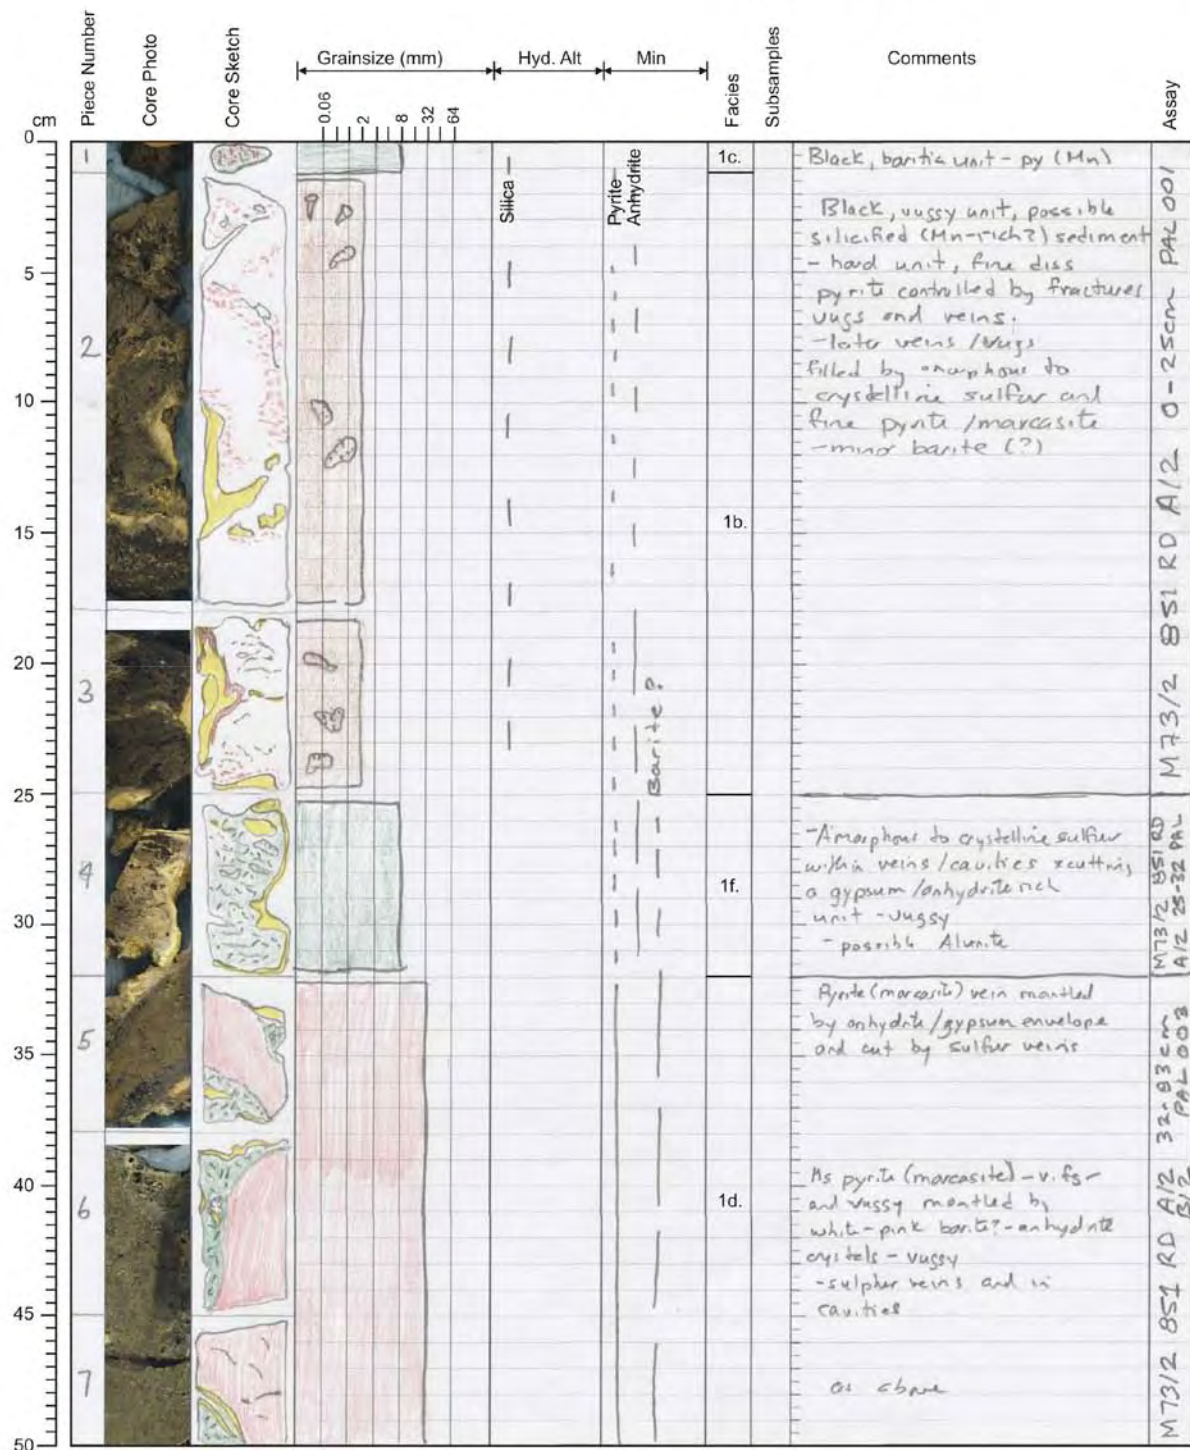 Piece Number
Core Photo
Core Sketch
Grainsize (mm)
Hyd. Alt
Min
Facies
Subsamples
Comments
Assay
0.06
2
8
32
64
cm
0
5
10
15
20
25
30
35
40
45
50
1
2
3
4
5
6
7
Silica
Pyrite
Anhydrite
Barite ?
1c.
1b.
1f.
1d.
Black, baritic unit - py (Mn)
Black, vussy unit, possible
silicified (Mn-rich?) sediment
- hard unit, fine diss
pyrite controlled by fractures
vugs and veins.
- later veins / vugs
filled by amorphous to
crystalline sulfur and
fine pyrite / marcasite
- minor barite (?)
- Amorphous to crystalline sulfur
within veins / cavities xcutting
a gypsum / anhydrite rich
unit - vugsy
- possible Alunite
Pyrite (marcasite) vein mantled
by anhydrite / gypsum envelope
and cut by sulfur veins
Ms pyrite (marcasite) - v. fg -
and vussy mantled by
white - pink barite? - anhydrite
crystals - vuggy
- sulpher veins and in
cavities
as above
M73/2 851 RD A/2 0-25cm PAL 001
M73/2 851 RD
A/2 25-32 PAL
M73/2 851 RD A/2 32-83cm
B/2 PAL 003